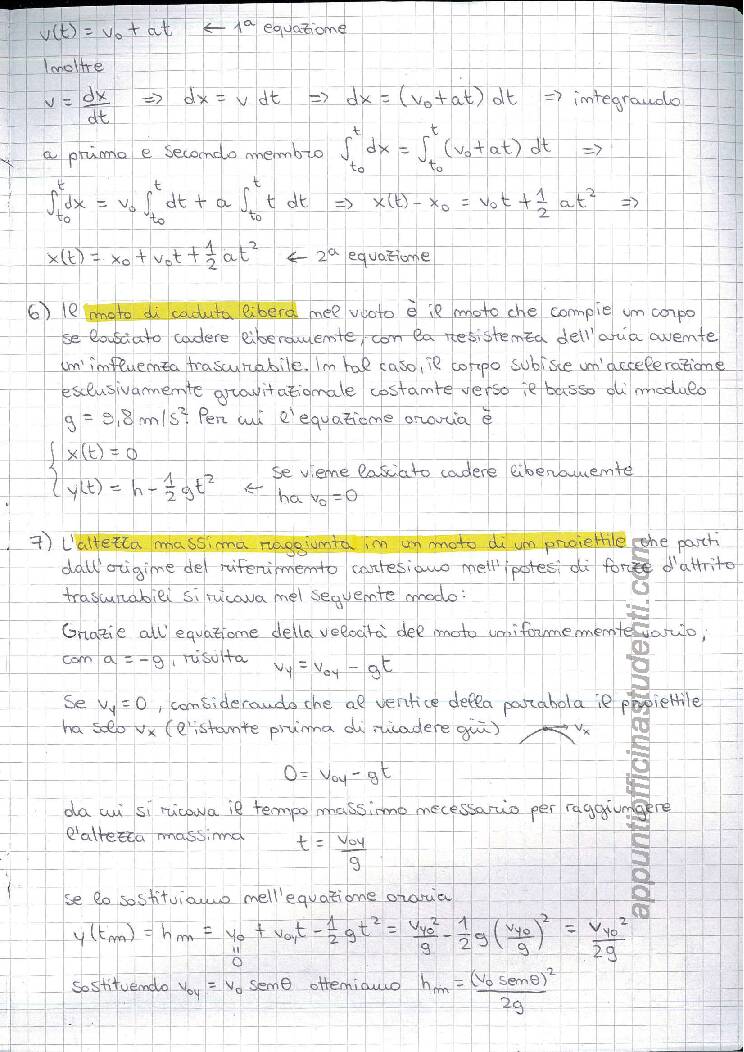 v(t) = v₀ + at ← 1ª equazione
Inoltre
v = dx/dt => dx = v dt => dx = (v₀+at) dt => integrando
a primo e secondo membro ∫_{t₀}^{t} dx = ∫_{t₀}^{t} (v₀+at) dt =>
∫_{t₀}^{t} dx = v₀ ∫_{t₀}^{t} dt + a ∫_{t₀}^{t} t dt => x(t) - x₀ = v₀t + 1/2 at² =>
x(t) = x₀ + v₀t + 1/2 at² ← 2ª equazione
6) Il moto di caduta libera nel vuoto è il moto che compie un corpo
se lasciato cadere liberamente, con la resistenza dell'aria avente
un'influenza trascurabile. In tal caso, il corpo subisce un'accelerazione
esclusivamente gravitazionale costante verso il basso di modulo
g = 9,8 m/s². Per cui l'equazione oraria è
{ x(t) = 0
{ y(t) = h - 1/2 gt² ← se viene lasciato cadere liberamente
ha v₀ = 0
7) L'altezza massima raggiunta in un moto di un proiettile che parti
dall'origine del riferimento cartesiano nell'ipotesi di forze d'attrito
trascurabili si ricava nel seguente modo:
Grazie all'equazione della velocità del moto uniformemente vario,
con a = -g, risulta v_y = v_{oy} - gt
Se v_y = 0, considerando che al vertice della parabola il proiettile
ha solo v_x (l'istante prima di ricadere giù) v_x
0 = v_{oy} - gt
da cui si ricava il tempo massimo necessario per raggiungere
l'altezza massima t = v_{oy}/g
se lo sostituiamo nell'equazione oraria
y(t_m) = h_m = y₀ + v_{oy}t - 1/2 gt² = v_{yo}²/g - 1/2 g (v_{yo}/g)² = v_{yo}²/2g
=
0
sostituendo v_{oy} = v₀ senθ otteniamo h_m = (v₀ senθ)²/2g
appuntiofficinastudenti.com